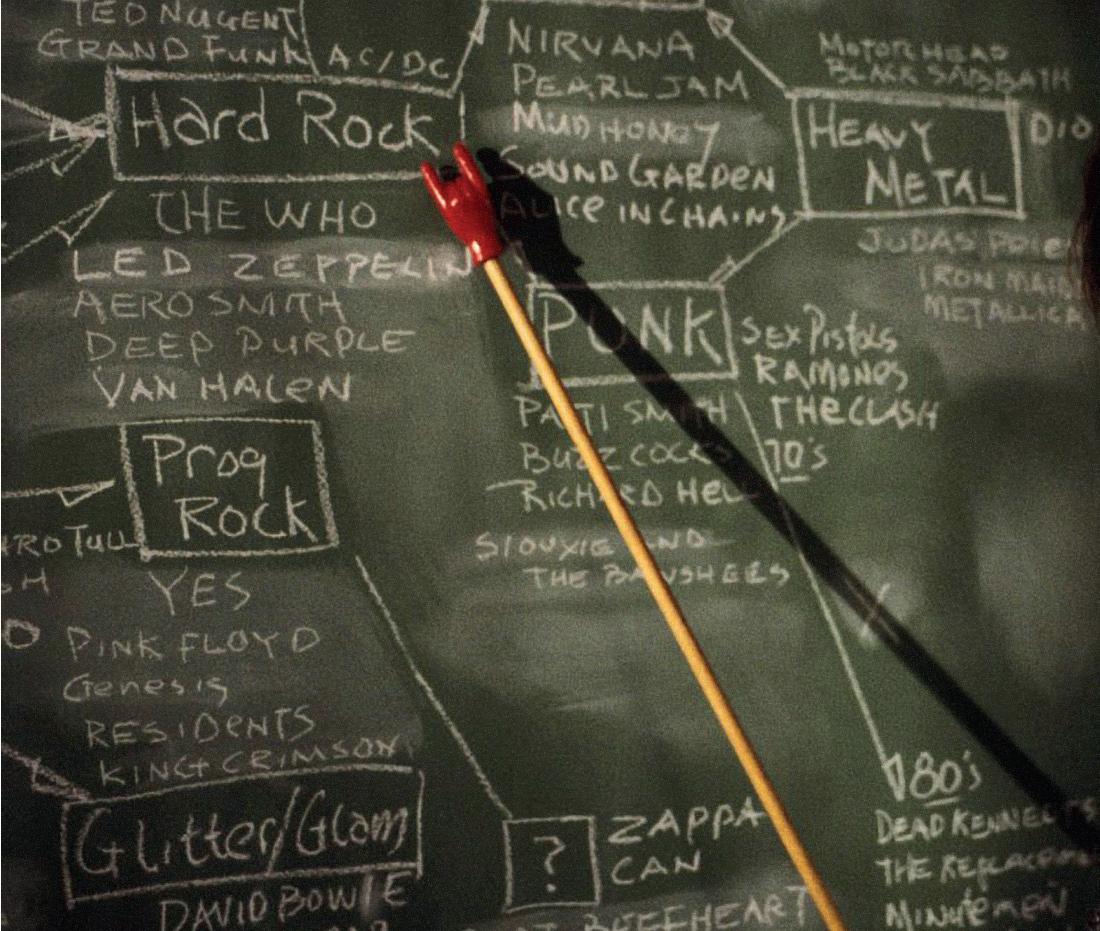 TED NUGENT
GRAND FUNK
AC/DC
Hard Rock
THE WHO
LED ZEPPELIN
AEROSMITH
DEEP PURPLE
VAN HALEN
NIRVANA
PEARL JAM
MUDHONEY
SOUND GARDEN
ALICE IN CHAINS
MOTORHEAD
BLACK SABBATH
HEAVY
METAL
DIO
JUDAS PRIE
IRON MAID
METALLICA
PUNK
SEX PISTOLS
RAMONES
THE CLASH
70's
PATTI SMITH
BUZZ COCKS
RICHARD HELL
SIOUXIE AND
THE BANSHEES
Prog
Rock
RO TULL
SH
YES
O
PINK FLOYD
Genesis
RESIDENTS
KING CRIMSON
Glitter/Glam
DAVID BOWIE
?
ZAPPA
CAN
BEEFHEART
80's
DEAD KENNEDYS
THE REPLACEM
MINUTEMEN